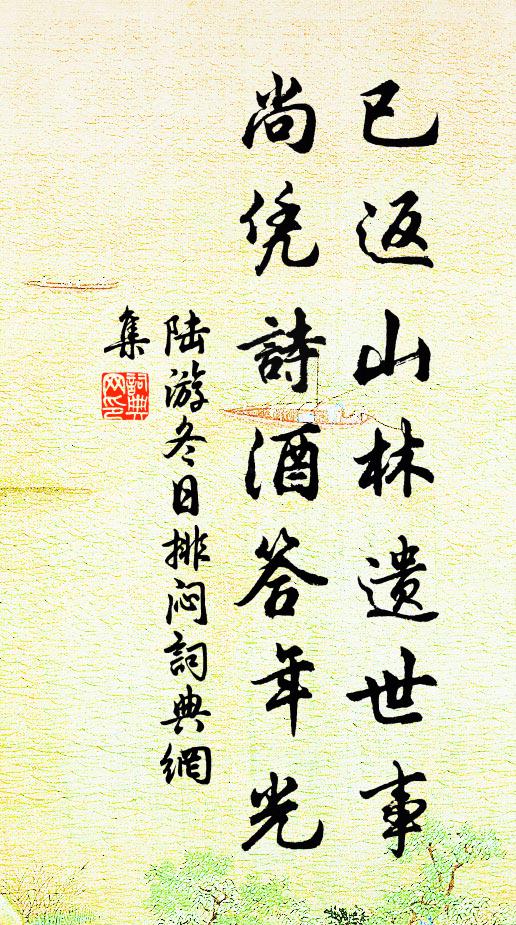 已返山林遗世事
尚凭詩酒答年光
陆游冬日排闷詞典網
集
詞典
网印